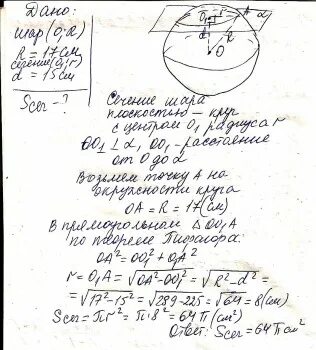 Дано:
шар (O; R)
R = 17 см
сечение (O₁; r)
d = 15 см
Sсеч - ?
O₁ r α
d R
O
Сечение шара
плоскостью — круг
с центром O₁ радиуса r
OO₁ ⊥ α, OO₁ - расстояние
от O до α
Возьмем точку A на
окружности круга
OA = R = 17 (см)
В прямоугольном △OO₁A
по теореме Пифагора:
OA² = OO₁² + O₁A²
r = O₁A = √OA² - OO₁² = √R² - d² =
= √17² - 15² = √289 - 225 = √64 = 8 (см)
Sсеч = πr² = π·8² = 64π (см²)
Ответ: Sсеч = 64π см²